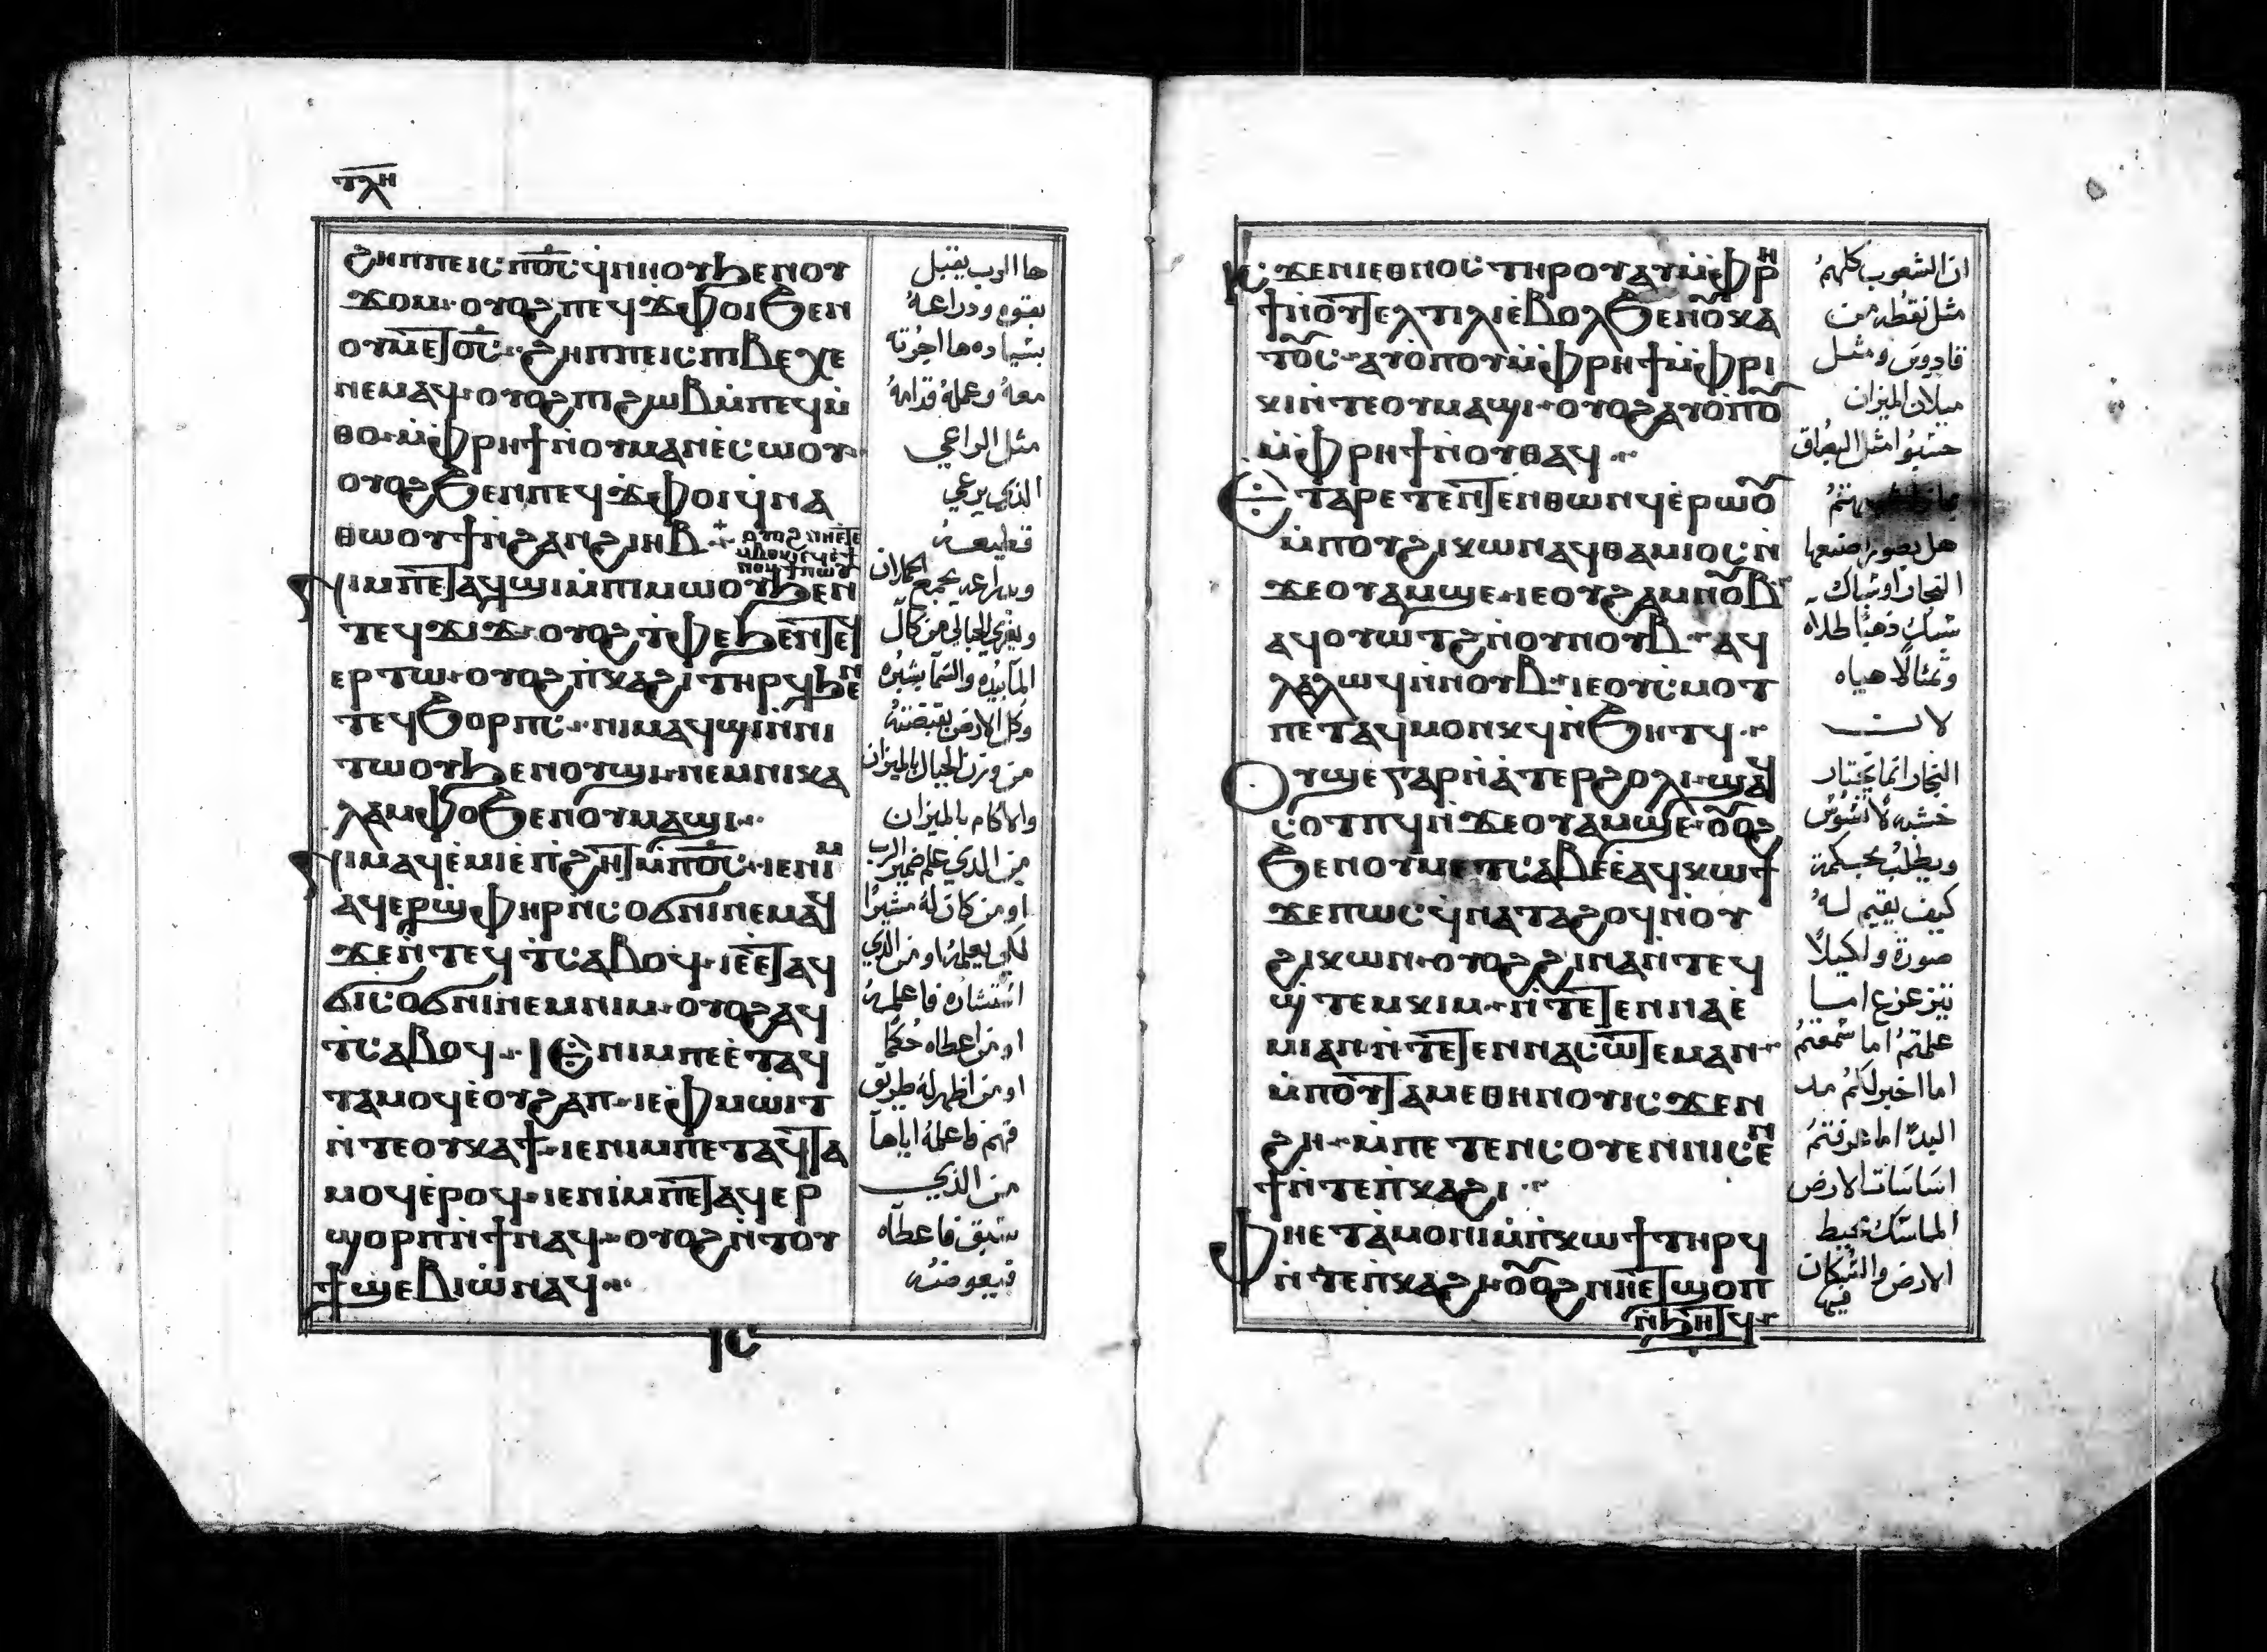 ⲧⲗⲏ
ϩⲏⲡⲡⲉⲓⲥ ⲡⲟ̅ⲥ̅ ϥ̀ⲛⲏⲟⲩ ϧⲉⲛⲟⲩ
ϫⲟⲙ ⲟⲩⲟϩ ⲡⲉϥϫⲫⲟⲓ ϧⲉⲛ
ⲟⲩⲙⲉⲧⲟ̅ⲥ̅ ϩⲏⲡⲡⲉⲓⲥ ⲡⲓⲃⲉⲭⲉ
ⲛⲉⲙⲁϥ ⲟⲩⲟϩ ⲡⲓϩⲱⲃ ⲙ̀ⲡⲉϥⲙ̀
ⲑⲟ ⲙ̀ⲫⲣⲏϯ ⲛ̀ⲟⲩⲙⲁⲛⲉ̀ⲥⲱⲟⲩ
ⲟⲩⲟϩ ϧⲉⲛ ⲡⲉϥϫⲫⲟⲓ ϥ̀ⲛⲁ
ⲑⲱⲟⲩϯ ⲛ̀ϩⲁⲛϩⲓⲏⲃ
ⲛⲓⲙ ⲡⲉⲧⲁϥϣⲓ ⲙ̀ⲡⲓⲙⲱⲟⲩ ϧⲉⲛ
ⲧⲉϥϫⲓϫ ⲟⲩⲟϩ ⲧ̀ⲫⲉ ϧⲉⲛ ⲧⲉϥ
ⲉⲣⲧⲱ ⲟⲩⲟϩ ⲡ̀ⲕⲁϩⲓ ⲧⲏⲣϥ ϧⲉⲛ
ⲧⲉϥϭⲟⲣⲡⲥ ⲛⲓⲙ ⲁϥϣⲓ ⲛ̀ⲛⲓ
ⲧⲱⲟⲩ ϧⲉⲛⲟⲩϣⲓ ⲛⲉⲙ ⲛⲓⲕⲁ
ⲗⲁⲙⲫⲟ ϧⲉⲛⲟⲩⲙⲁϣⲓ
ⲛⲓⲙ ⲁϥⲉ̀ⲙⲓ ⲉ̀ⲡ̀ϩⲏⲧ ⲙ̀ⲡⲟ̅ⲥ̅ ⲓⲉ ⲛⲓⲙ
ⲁϥⲉⲣϣ̀ⲫⲏⲣ ⲛ̀ⲥⲟϭⲛⲓ ⲛⲉⲙⲁϥ
ϫⲉ ⲛ̀ⲧⲉϥⲧ̀ⲥⲁⲃⲟϥ ⲓⲉ ⲉ̀ⲧⲁϥ
ϭⲓⲥⲟϭⲛⲓ ⲛⲉⲙ ⲛⲓⲙ ⲟⲩⲟϩ ⲁϥ
ⲧ̀ⲥⲁⲃⲟϥ ⲓⲉ ⲛⲓⲙ ⲡⲉⲉ̀ⲧⲁϥ
ⲧⲁⲙⲟϥ ⲉ̀ⲟⲩϩⲁⲡ ⲓⲉ ⲫ̀ⲙⲱⲓⲧ
ⲛ̀ⲧⲉ ⲟⲩⲕⲁϯ ⲓⲉ ⲛⲓⲙ ⲡⲉⲧⲁϥⲧⲁ
ⲙⲟϥ ⲉ̀ⲣⲟϥ ⲓⲉ ⲛⲓⲙ ⲡⲉⲧⲁϥⲉⲣ
ϣⲟⲣⲡ ⲛ̀ϯ ⲛⲁϥ ⲟⲩⲟϩ ⲛ̀ⲧⲟⲩ
ϯϣⲉⲃⲓⲱ̀ ⲛⲁϥ
ⲓⲥ
ها الرب يقبل
بقوه ودراعهُ
بشياده ها اجرته
معهُ وعملهُ قدامهُ
مثل الراعي
الذي يرعي
قطيعهُ
وبدراعه يجمع الحملان
المآ بيده والسمآ بشبره
وكل الارض بقبضته
من وزن الجبال بالميزان
والاكام بالميزان
من الذي علم ضمير الرب
او من كان لهُ مشيرًا
لكي يعلمهُ او من الذي
استشاره فاعلمهُ
او من اعطاه حُكمًا
او من اظهر لهُ طريق
فهم فاعلمهُ اياها
من الذي
سبق فاعطاه
فيعوضهُ
ⲓⲥ ϫⲉ ⲛⲓⲉⲑⲛⲟⲥ ⲧⲏⲣⲟⲩ ⲁⲩ ⲙ̀ⲫⲣⲏ
ϯ ⲛ̀ⲟⲩⲧⲉⲗⲧⲓⲗⲓ ⲉ̀ⲃⲟⲗ ϧⲉⲛⲟⲩⲕⲁ
ⲧⲟⲥ ⲁⲩⲟ̀ⲡⲟⲩ ⲙ̀ⲫⲣⲏϯ ⲙ̀ⲫⲣⲓ
ⲕⲓ ⲛ̀ⲧⲉ ⲟⲩⲙⲁϣⲓ ⲟⲩⲟϩ ⲁⲩⲟ̀ⲡⲟⲩ
ⲙ̀ⲫⲣⲏϯ ⲛ̀ⲟⲩⲑⲁϥ
ⲉⲧⲁⲣⲉⲧⲉⲛⲧⲉⲛⲑⲱⲛϥ ⲉ̀ⲣⲱⲟⲩ
ⲙ̀ⲡⲟⲩϩⲓⲕⲱⲛ ⲁϥⲑⲁⲙⲓⲟⲥ ⲛ̀
ϫⲉ ⲟⲩⲁⲙϣⲉ ⲓⲉ ⲟⲩϩⲁⲙⲛⲟⲩⲃ
ⲁϥⲟⲩⲱⲧϩ ⲛ̀ⲟⲩⲛⲟⲩⲃ ⲁϥ
ⲗⲁⲗⲱϥ ⲛ̀ⲛⲟⲩⲃ ⲓⲉ ⲟⲩⲥⲙⲟⲧ
ⲡⲉⲧⲁϥⲙⲟⲛⲕϥ ⲛ̀ϧⲏⲧϥ
ⲟⲩϣⲉ ⲅⲁⲣ ⲛ̀ⲁⲧⲉⲣϩⲟⲗⲓ ϣⲁϥ
ⲥⲟⲧⲡϥ ⲛ̀ϫⲉ ⲟⲩⲁⲙϣⲉ ⲟⲩⲟϩ
ϧⲉⲛ ⲟⲩⲙⲉⲧⲥⲁⲃⲉ ⲉ̀ⲁϥⲕⲱϯ
ϫⲉ ⲡⲱⲥ ϥ̀ⲛⲁⲧⲁϩⲟϥ ⲛ̀ⲟⲩ
ϩⲓⲕⲱⲛ ⲟⲩⲟϩ ϩⲓⲛⲁ ⲛ̀ⲧⲉϥ
ϣ̀ⲧⲉⲙⲕⲓⲙ ⲛ̀ⲧⲉⲧⲉⲛⲛⲁⲉ̀
ⲙⲓ ⲁⲛ ⲛ̀ⲧⲉⲧⲉⲛⲛⲁⲥⲱⲧⲉⲙ ⲁⲛ
ⲙ̀ⲡⲟⲩⲧⲁⲙⲉ ⲑⲏⲛⲟⲩ ⲓⲥϫⲉⲛ
ϩⲏ ⲙ̀ⲡⲉⲧⲉⲛⲥⲟⲩⲉⲛ ⲛⲓⲥⲉⲛ
ϯ ⲛ̀ⲧⲉ ⲡ̀ⲕⲁϩⲓ
ⲫⲏⲉⲧⲁ̀ⲙⲟⲛⲓ ⲙ̀ⲡ̀ⲕⲱϯ ⲧⲏⲣϥ
ⲛ̀ⲧⲉ ⲡ̀ⲕⲁϩⲓ ⲟⲩⲟϩ ⲛⲏⲉⲧϣⲟⲡ
ⲛ̀ϧⲏⲧϥ
ان الشعوب كلهمُ
مثل نقطه من
قادوس ومثل
ميلان الميزان
حسبوا مثل البصاق
هل بصوره صنعها
النجار او سباك
سبك ذهبًا طلاه
وتمثالًا هياه
النجار انما يختار
خشبه لا تسوس
ويطلب بحكمة
كيف يقيم لهُ
صورة ولكيلا
تتزعزع اما
علمتمُ اما سمعتمُ
اما اخبر لكمُ مند
البدء اما عرفتمُ
اساسات الارض
الماسك محيط
الارض والسكان
فيها